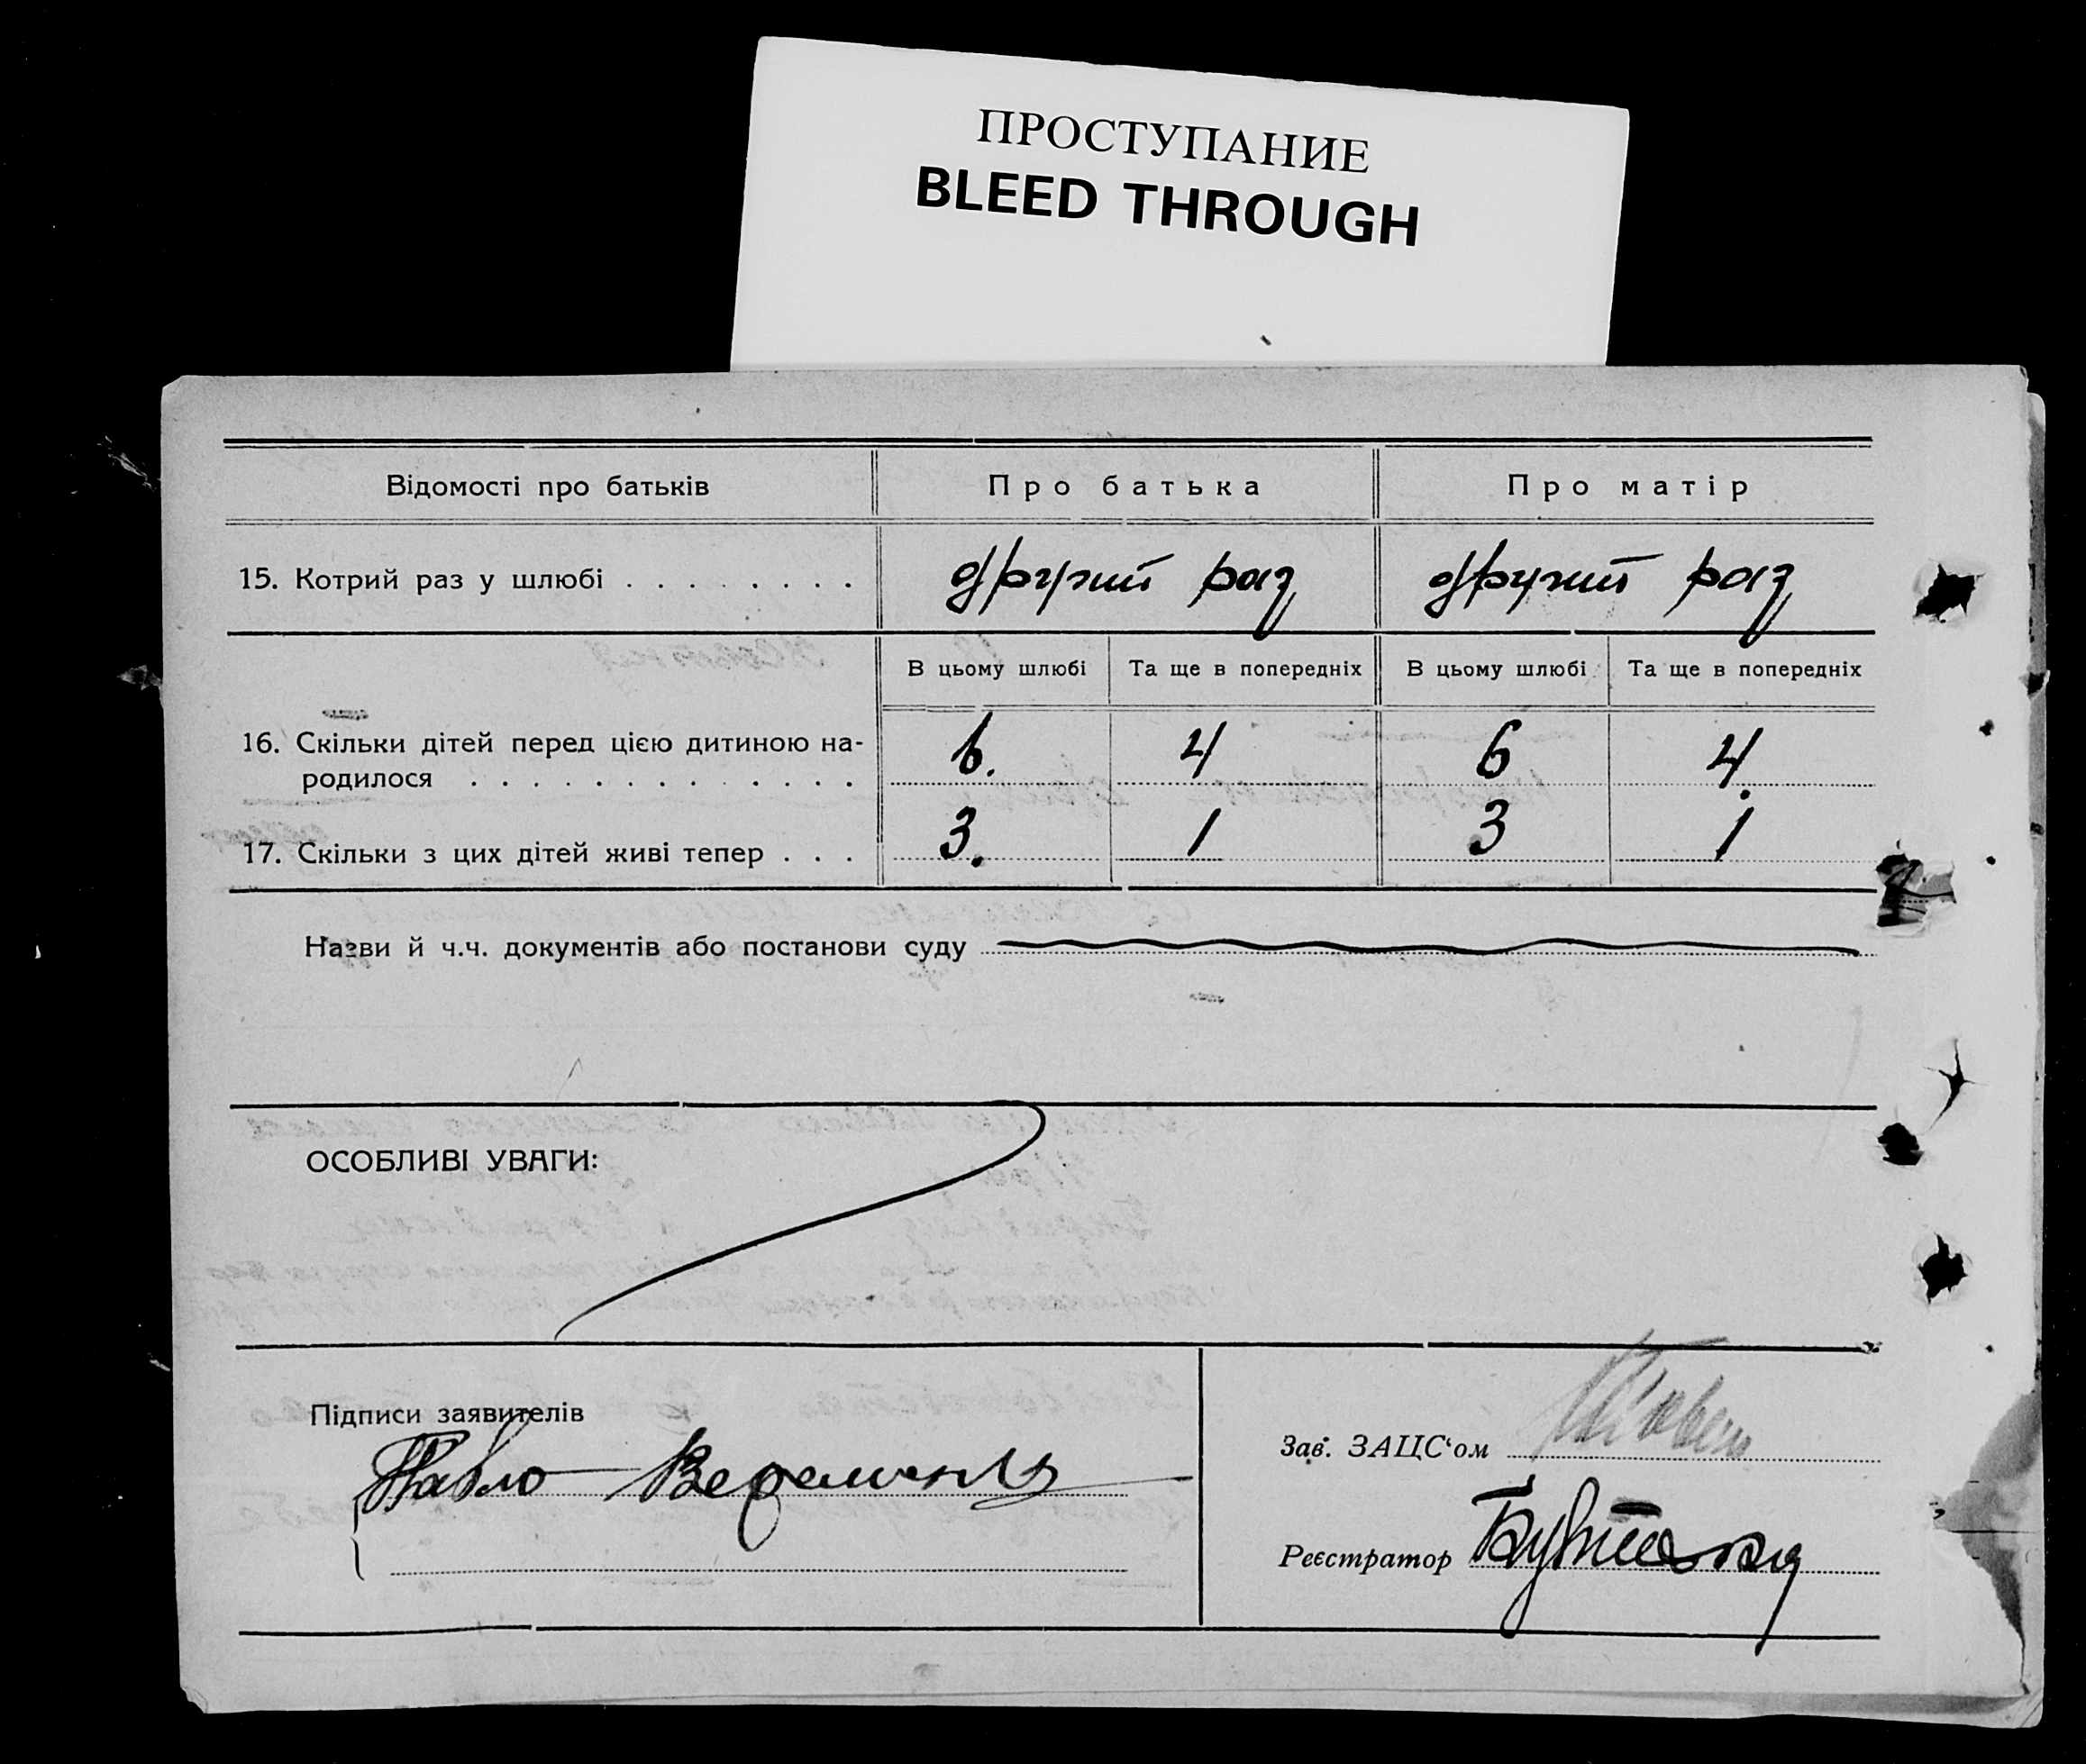 ПРОСТУПАНИЕ
BLEED THROUGH
Відомості про батьків Про батька Про матір
15. Котрий раз у шлюбі . . . . . . . . другий раз другий раз
В цьому шлюбі Та ще в попередніх В цьому шлюбі Та ще в попередніх
16. Скільки дітей перед цією дитиною на-
родилося . . . . . . . . . . . . . 6. 4 6 4.
17. Скільки з цих дітей живі тепер . . . 3. 1 3 1
Назви й ч.ч. документів або постанови суду
ОСОБЛИВІ УВАГИ:
Підписи заявителів
Зав. ЗАЦС'ом
Павло
Реєстратор